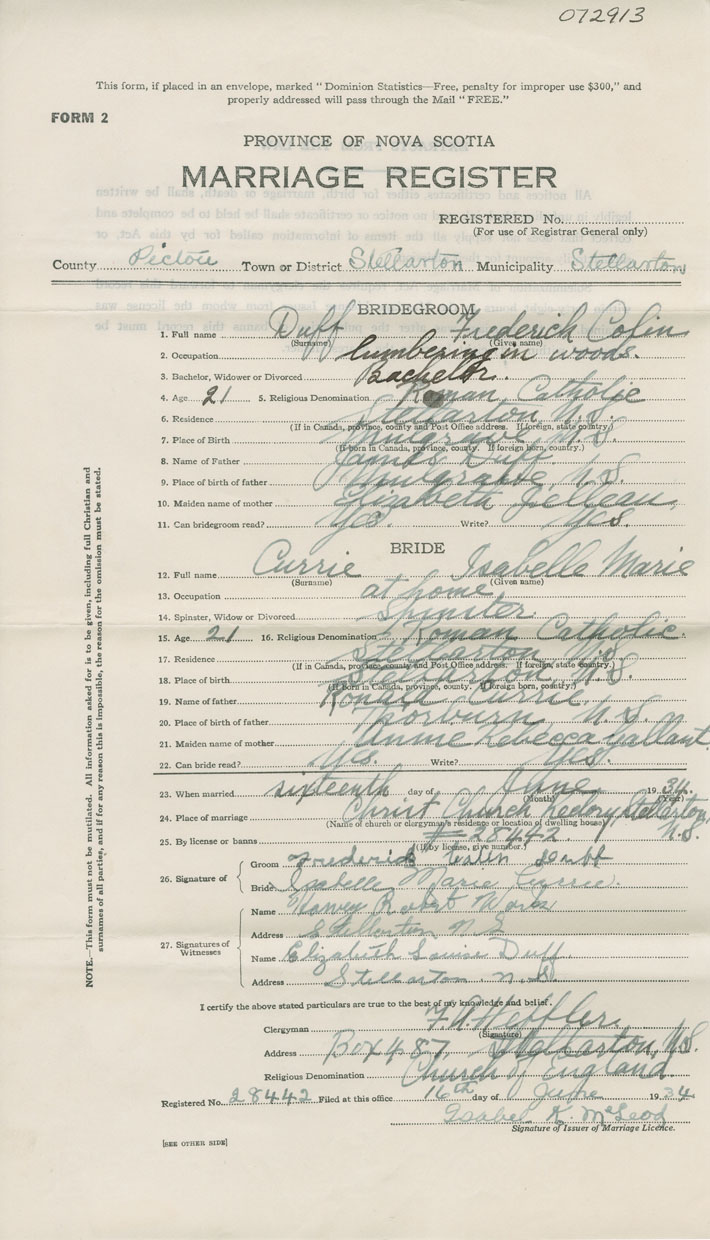 072913
This form, if placed in an envelope, marked "Dominion Statistics—Free, penalty for improper use $300," and
properly addressed will pass through the Mail "FREE."
FORM 2
PROVINCE OF NOVA SCOTIA
MARRIAGE REGISTER
REGISTERED No.
(For use of Registrar General only)
County Pictou Town or District Stellarton Municipality Stellarton
BRIDEGROOM
1. Full name Duff Frederick Colin
(Surname) (Given name)
2. Occupation lumbering in woods.
3. Bachelor, Widower or Divorced Bachelor.
4. Age 21 5. Religious Denomination Roman Catholic
6. Residence Stellarton N.S.
(If in Canada, province, county and Post Office address. If foreign, state country.)
7. Place of Birth Mulgrave, N.S.
(If born in Canada, province, county. If foreign born, country.)
8. Name of Father James Duff
9. Place of birth of father Mulgrave, N.S.
10. Maiden name of mother Elizabeth
11. Can bridegroom read? Yes. Write? Yes.
BRIDE
12. Full name Currie Isabelle Marie
(Surname) (Given name)
13. Occupation at home
14. Spinster, Widow or Divorced Spinster.
15. Age 21 16. Religious Denomination Roman Catholic.
17. Residence Stellarton N.S.
(If in Canada, province, county and Post Office address. If foreign, state country.)
18. Place of birth Stellarton N.S.
(If born in Canada, province, county. If foreign born, country.)
19. Name of father Ronald Currie
20. Place of birth of father Thorburn N.S.
21. Maiden name of mother Annie Rebecca Gallant
22. Can bride read? Yes. Write? Yes.
23. When married sixteenth day of June 1934.
(Month) (Year)
24. Place of marriage Christ Church Rectory Stellarton, N.S.
(Name of church or clergyman's residence or location of dwelling house)
25. By license or banns # 28442.
(If by license, give number.)
26. Signature of
Groom Frederick Colin Duff
Bride Isabelle Marie Currie.
27. Signatures of Witnesses
Name Harvey Robert
Address Stellarton N S
Name Elizabeth Louise Duff
Address Stellarton N.S.
I certify the above stated particulars are true to the best of my knowledge and belief.
Clergyman F. A. Heffler
(Signature)
Address Box 487, Stellarton, N.S.
Religious Denomination Church of England.
Registered No. 28442 Filed at this office 16th day of June 1934
Isabel K. McLeod
Signature of Issuer of Marriage Licence.
[SEE OTHER SIDE]
NOTE.—This form must not be mutilated. All information asked for is to be given, including full Christian and
surnames of all parties, and if for any reason this is impossible, the reason for the omission must be stated.